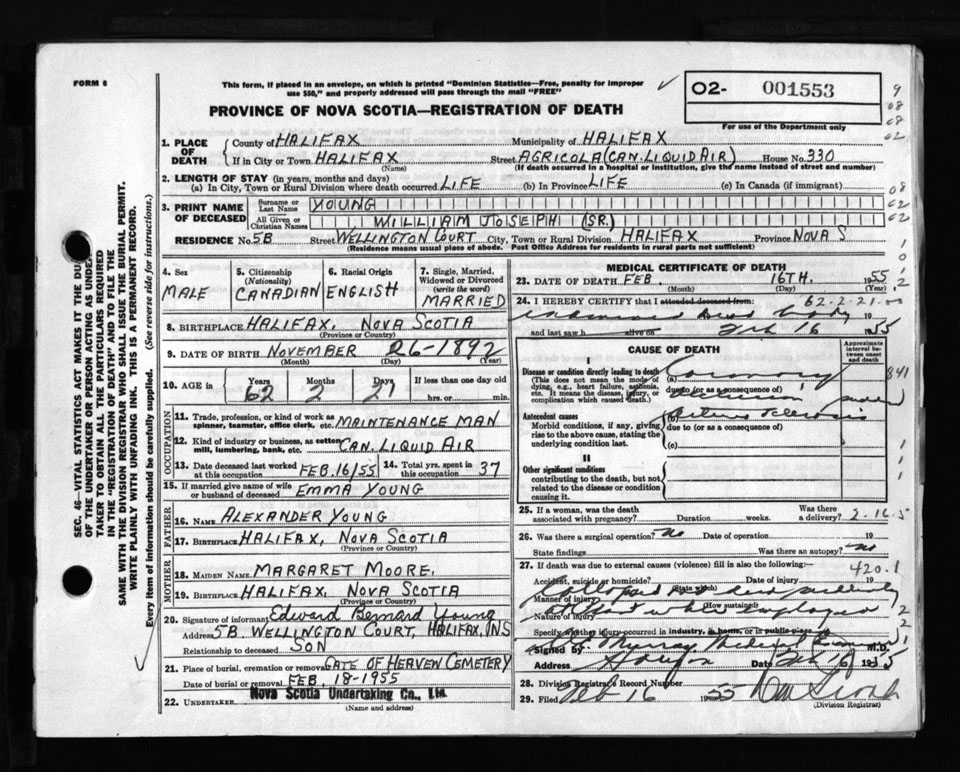 FORM 6
This form, if placed in an envelope, on which is printed "Dominion Statistics—Free, penalty for improper
use $50," and properly addressed will pass through the mail "FREE"
PROVINCE OF NOVA SCOTIA—REGISTRATION OF DEATH
02- 001553
For use of the Department only
9
08
08
02
SEC. 46—VITAL STATISTICS ACT MAKES IT THE DU
OF THE UNDERTAKER OR PERSON ACTING AS UNDER
TAKER TO OBTAIN ALL THE PARTICULARS REQUIRED
IN THE "REGISTRATION OF DEATH" AND TO FILE THE
SAME WITH THE DIVISION REGISTRAR WHO SHALL ISSUE THE BURIAL PERMIT.
WRITE PLAINLY WITH UNFADING INK. THIS IS A PERMANENT RECORD.
Every item of information should be carefully supplied. (See reverse side for instructions.)
1. PLACE OF DEATH
County of HALIFAX Municipality of HALIFAX
If in City or Town HALIFAX Street AGRICOLA (CAN. LIQUID AIR) House No. 330
(Name) (If death occurred in a hospital or institution, give the name instead of street and number)
2. LENGTH OF STAY (in years, months and days)
(a) In City, Town or Rural Division where death occurred LIFE (b) In Province LIFE (c) In Canada (if immigrant)
08
3. PRINT NAME OF DECEASED
Surname or Last Name YOUNG
02
All Given or Christian Names WILLIAM JOSEPH (SR.)
02
RESIDENCE No. 5B Street WELLINGTON COURT City, Town or Rural Division HALIFAX Province NOVA S
(Residence means usual place of abode. Post Office Address for residents in rural parts not sufficient)
4. Sex
MALE
5. Citizenship (Nationality)
CANADIAN
6. Racial Origin
ENGLISH
7. Single, Married, Widowed or Divorced (write the word)
MARRIED
8. BIRTHPLACE HALIFAX, NOVA SCOTIA
(Province or Country)
9. DATE OF BIRTH NOVEMBER 26-1892
(Month) (Day) (Year)
10. AGE in
Years Months Days If less than one day old
62 2 21 hrs. or min.
OCCUPATION
11. Trade, profession, or kind of work as
spinner, teamster, office clerk, etc. MAINTENANCE MAN
12. Kind of industry or business, as cotton
mill, lumbering, bank, etc. CAN. LIQUID AIR
13. Date deceased last worked at this occupation FEB. 16/55 14. Total yrs. spent in this occupation 37
15. If married give name of wife
or husband of deceased EMMA YOUNG
FATHER
16. NAME ALEXANDER YOUNG
17. BIRTHPLACE HALIFAX, NOVA SCOTIA
(Province or Country)
MOTHER
18. MAIDEN NAME MARGARET MOORE.
19. BIRTHPLACE HALIFAX, NOVA SCOTIA
(Province or Country)
20. Signature of informant Edward Bernard Young
Address 5B. WELLINGTON COURT, HALIFAX, NS
Relationship to deceased SON
21. Place of burial, cremation or removal GATE OF HEAVEN CEMETERY
Date of burial or removal FEB. 18-1955
22. UNDERTAKER Nova Scotia Undertaking Co., Ltd.
(Name and address)
MEDICAL CERTIFICATE OF DEATH
23. DATE OF DEATH FEB. 16TH. 1955
(Month) (Day) (Year)
24. I HEREBY CERTIFY that I attended deceased from: 62-2-21-00
dead body
and last saw h alive on Feb 16 1955
CAUSE OF DEATH
Approximate interval between onset and death
I
Disease or condition directly leading to death
(This does not mean the mode of
dying, e.g., heart failure, asthenia,
etc. It means the disease, injury, or
complication which caused death.)
(a) Coronary
841
due to (or as a consequence of)
Antecedent causes
Morbid conditions, if any, giving
rise to the above cause, stating the
underlying condition last.
(b) Arterio Sclerosis
due to (or as a consequence of)
(c)
II
Other significant conditions
contributing to the death, but not
related to the disease or condition
causing it.
25. If a woman, was the death
associated with pregnancy? Duration weeks. Was there a delivery? 2-16-5
26. Was there a surgical operation? No Date of operation 19
State findings Was there an autopsy? No
27. If death was due to external causes (violence) fill in also the following:— 420.1
Accident, suicide or homicide? Date of injury 19
(State which)
Manner of injury Collapsed
(How sustained)
Nature of injury at plant where employed
Specify whether injury occurred in industry, in home, or in public place
Signed by Murray Medical M.D.
Address Date Feb 16 1955
28. Division Registrar's Record Number
29. Filed Feb 16 1955
(Division Registrar)